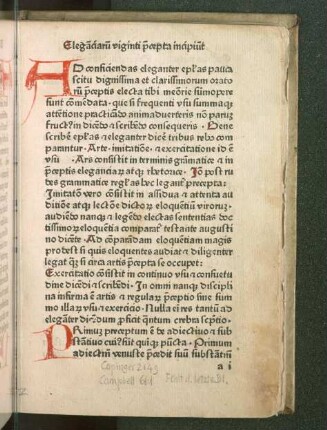 Elegãciarũ viginti p̃cepta incipiũt
AD conficiendas eleganter ep̃las pauca
scitu dignissima et clarissimorum orato
rũ p̃ceptis electa tibi memorie sũmopere
sunt cõmẽdata · que si frequenti vsu summaqz
attẽtione practicãdo animaduerteris nõ paruz
fructũ in dicẽdo ⁊ scribẽdo consequeris · Bene
scribẽ ep̃las ⁊ eleganter dicẽ tribus rebo com
parantur · Arte · imitatõne · ⁊ exercitatione id ẽ
vsu · Ars consistit in terminis grãmatice ⁊ in
p̃ceptis elegancia℞ atqz rhetorice ·
des grammatice regl̃as hec legant precepta:
Imitatõ vero cõsistit in assidua ⁊ attenta au
ditiõe atqz lectõe dictoꝝ eloquẽtiũ viroruz ·
audiẽdo nanqz ⁊ legẽdo electas sententias doc
tissimoꝝ eloquẽtia comparat᷑ testante augusti
no dicẽte · Ad cõparãdam eloquẽtiam magis
prodest si quis eloquentes audiat ⁊ diligenter
legat q̃z si circa artis p̃cepta se occupet:
Exercitatio cõsistit in continuo vsu ⁊ consuetu
dine dicẽdi ⁊ scribẽdi · In omni nanqz discipli
na infirma ẽ artis ⁊ regulaꝝ p̃ceptio sine sum
mo illaꝝ vsu ⁊ exercicio · Nulla ei res tantũ ad
elegãter dicẽdum p̃ficit q̃ntum crebra scp̃tio ·
PRimuz preceptum ẽ de adiectiuo ⁊ sub
stantiuo
adiectiũ venuste p̃cedit suũ substãtiũ
a i
Copinger 2143
Campbell 661